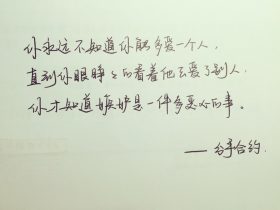 你永远不知道你能多爱一个人，
直到你眼睁々的看着他去爱了别人，
你才知道嫉妒是一件多恶心的事。
——台手合约